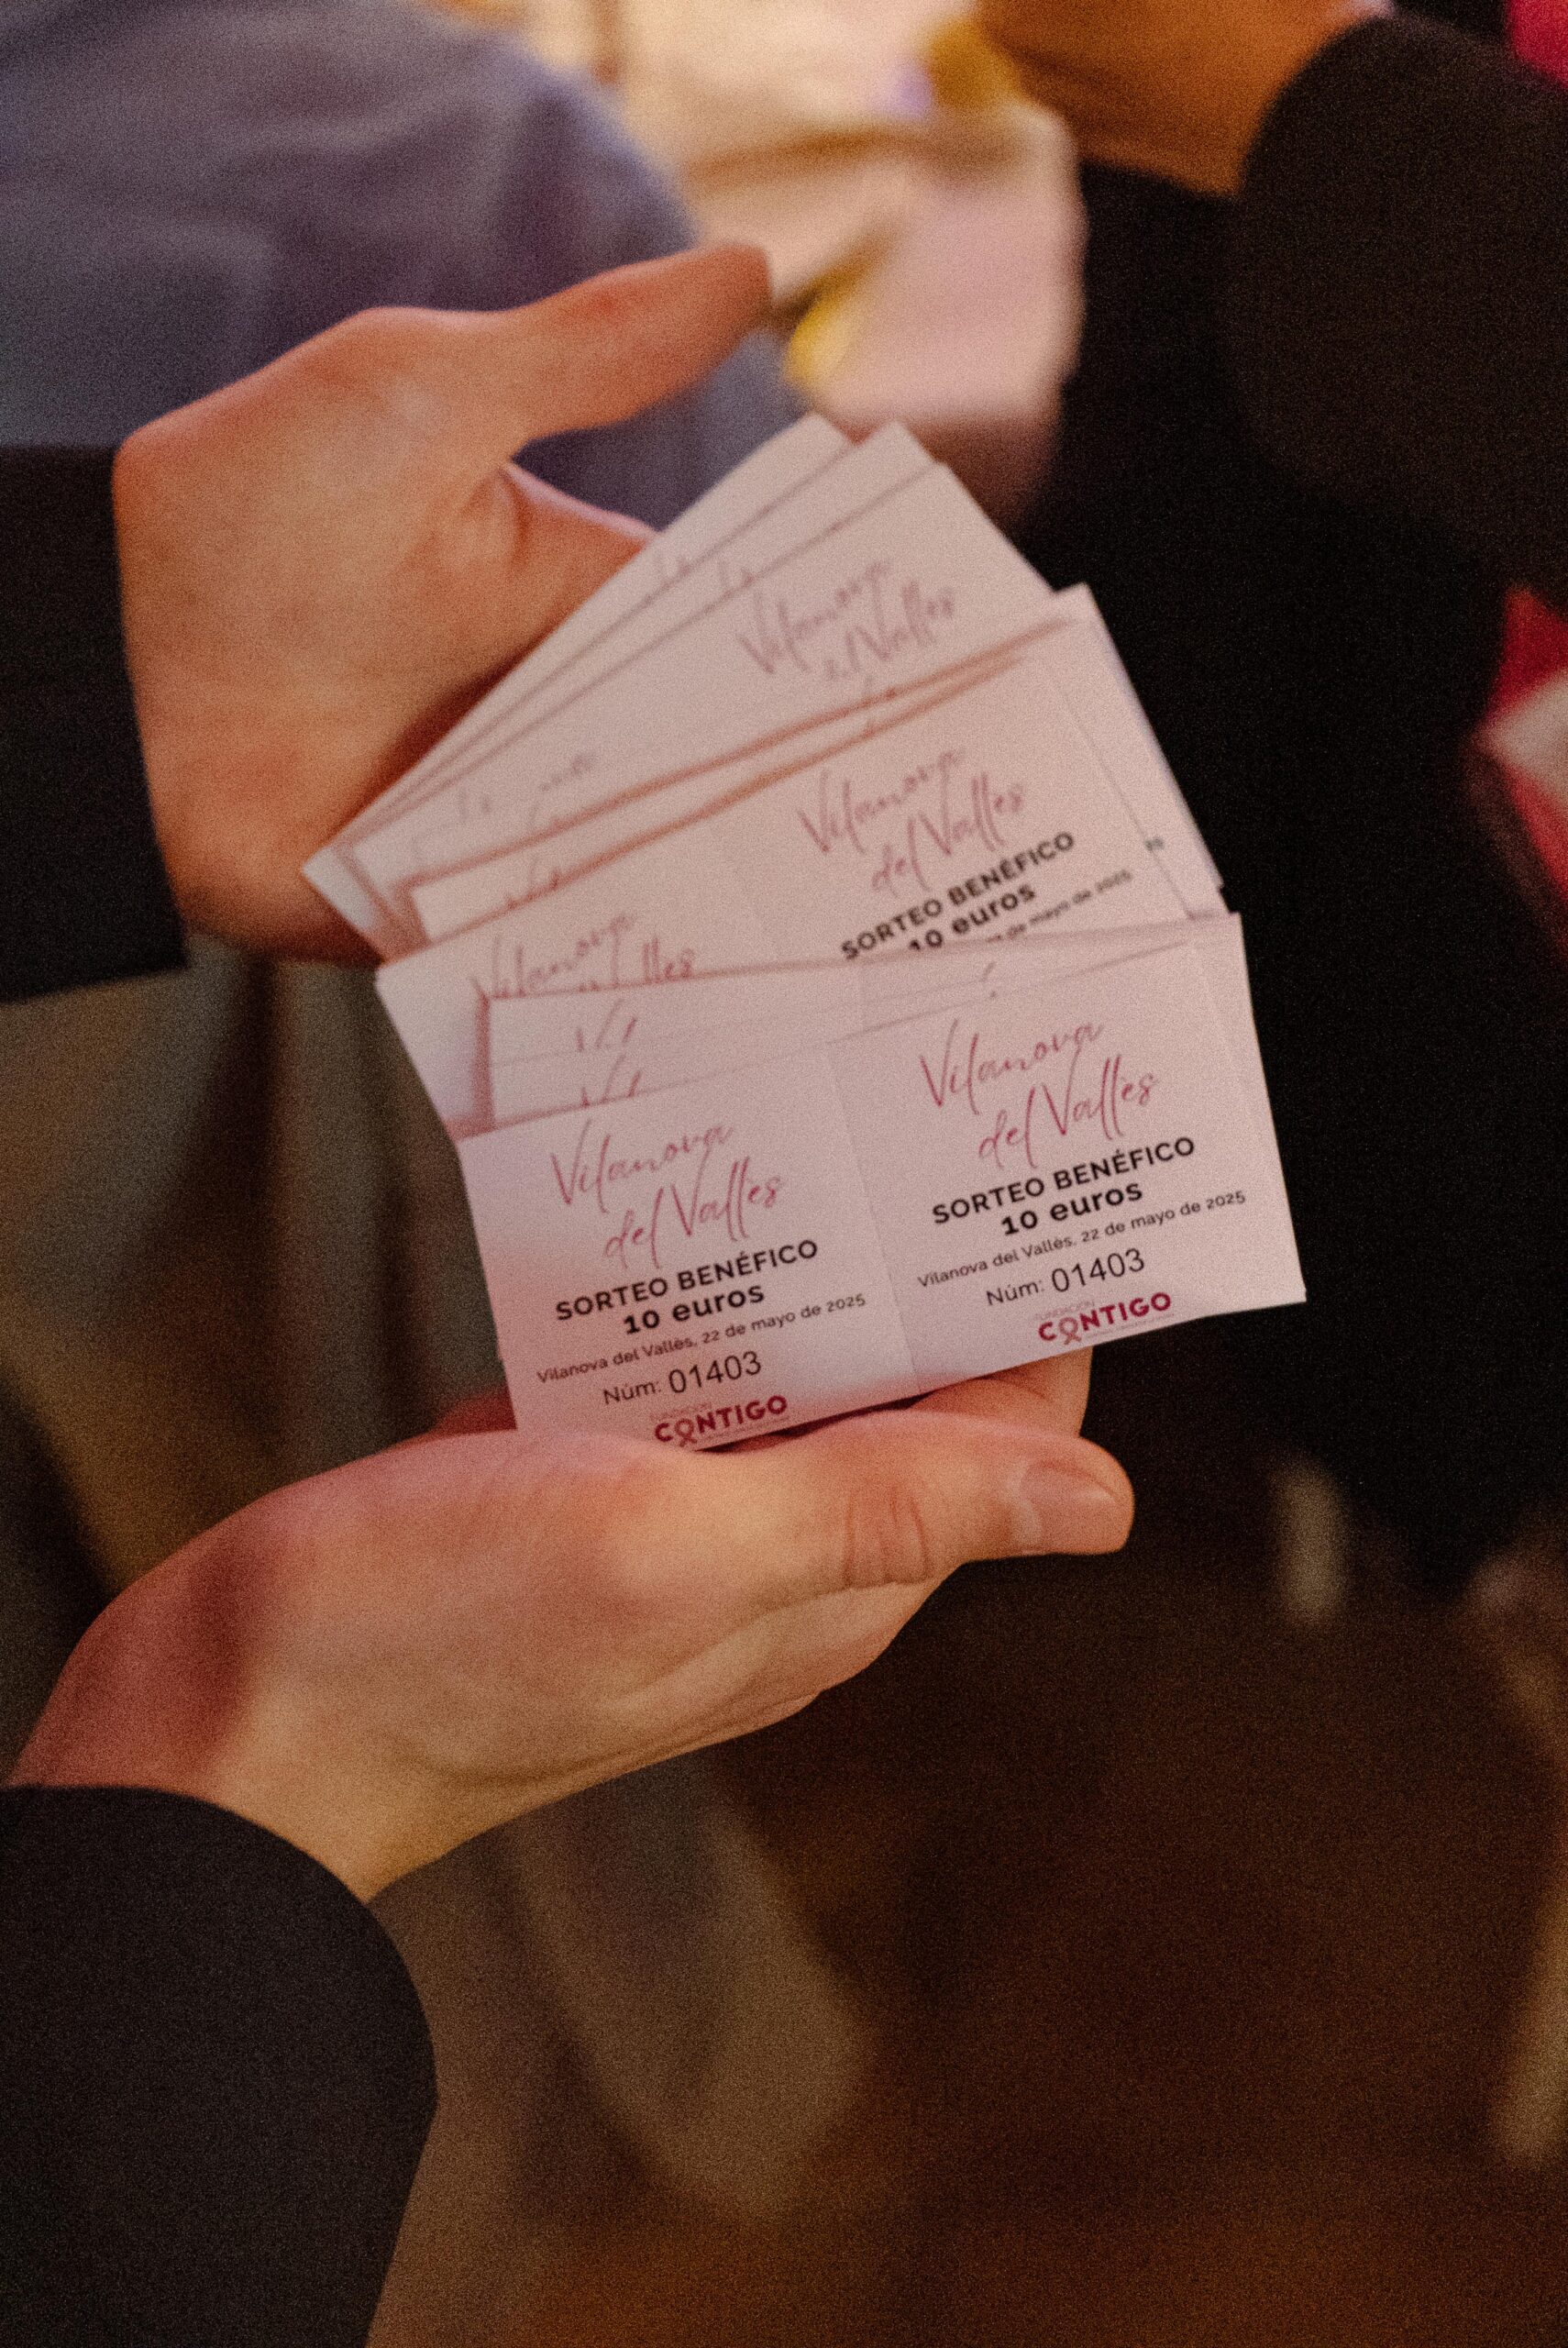 Vilanova
del Vallès
Vilanova
del Vallès
SORTEO BENÉFICO
10 euros
de mayo de 2025
Vilanova
lles
Vilanova
del Vallès
SORTEO BENÉFICO
10 euros
Vilanova del Vallès, 22 de mayo de 2025
Núm: 01403
FUNDACIÓN
CONTIGO
Vilanova
del Vallès
SORTEO BENÉFICO
10 euros
Vilanova del Vallès, 22 de mayo de 2025
Núm: 01403
FUNDACIÓN
CONTIGO